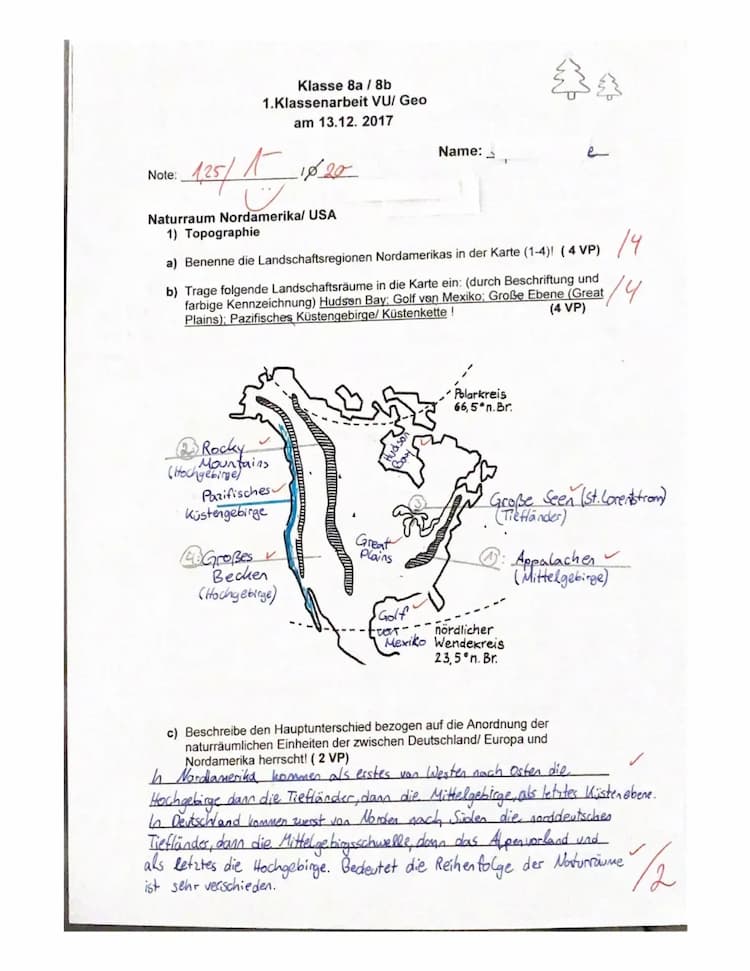 Klasse 8a / 8b
1.Klassenarbeit VU/ Geo
am 13.12. 2017
Name:
Note: 1,25/ 1- 20
Naturraum Nordamerika/ USA
1) Topographie
a) Benenne die Landschaftsregionen Nordamerikas in der Karte (1-4)! ( 4 VP) /4
b) Trage folgende Landschaftsräume in die Karte ein: (durch Beschriftung und
farbige Kennzeichnung) Hudson Bay; Golf von Mexiko; Große Ebene (Great /4
Plains); Pazifisches Küstengebirge/ Küstenkette ! (4 VP)
Polarkreis
66,5°n.Br.
Hudson
Bay
2. Rocky
Mountains
(Hochgebirge)
Pazifisches
Küstengebirge
3
Große Seen (St.Lorenzstrom)
(Tiefländer)
Great
Plains
4. Großes
Becken
(Hochgebirge)
1: Appalachen
(Mittelgebirge)
Golf
von
Mexiko
nördlicher
Wendekreis
23,5°n.Br.
c) Beschreibe den Hauptunterschied bezogen auf die Anordnung der
naturräumlichen Einheiten der zwischen Deutschland/ Europa und
Nordamerika herrscht! ( 2 VP)
In Nordamerika kommen als erstes von Westen nach Osten die
Hochgebirge dann die Tiefländer, dann die Mittelgebirge, als letztes Küstenebene.
In Deutschland kommen zuerst von Norden nach Süden die norddeutschen
Tiefländer, dann die Mittelgebirgsschwelle, dann das Alpenvorland und
als letztes die Hochgebirge. Bedeutet die Reihenfolge der Naturräume
ist sehr verschieden. /2